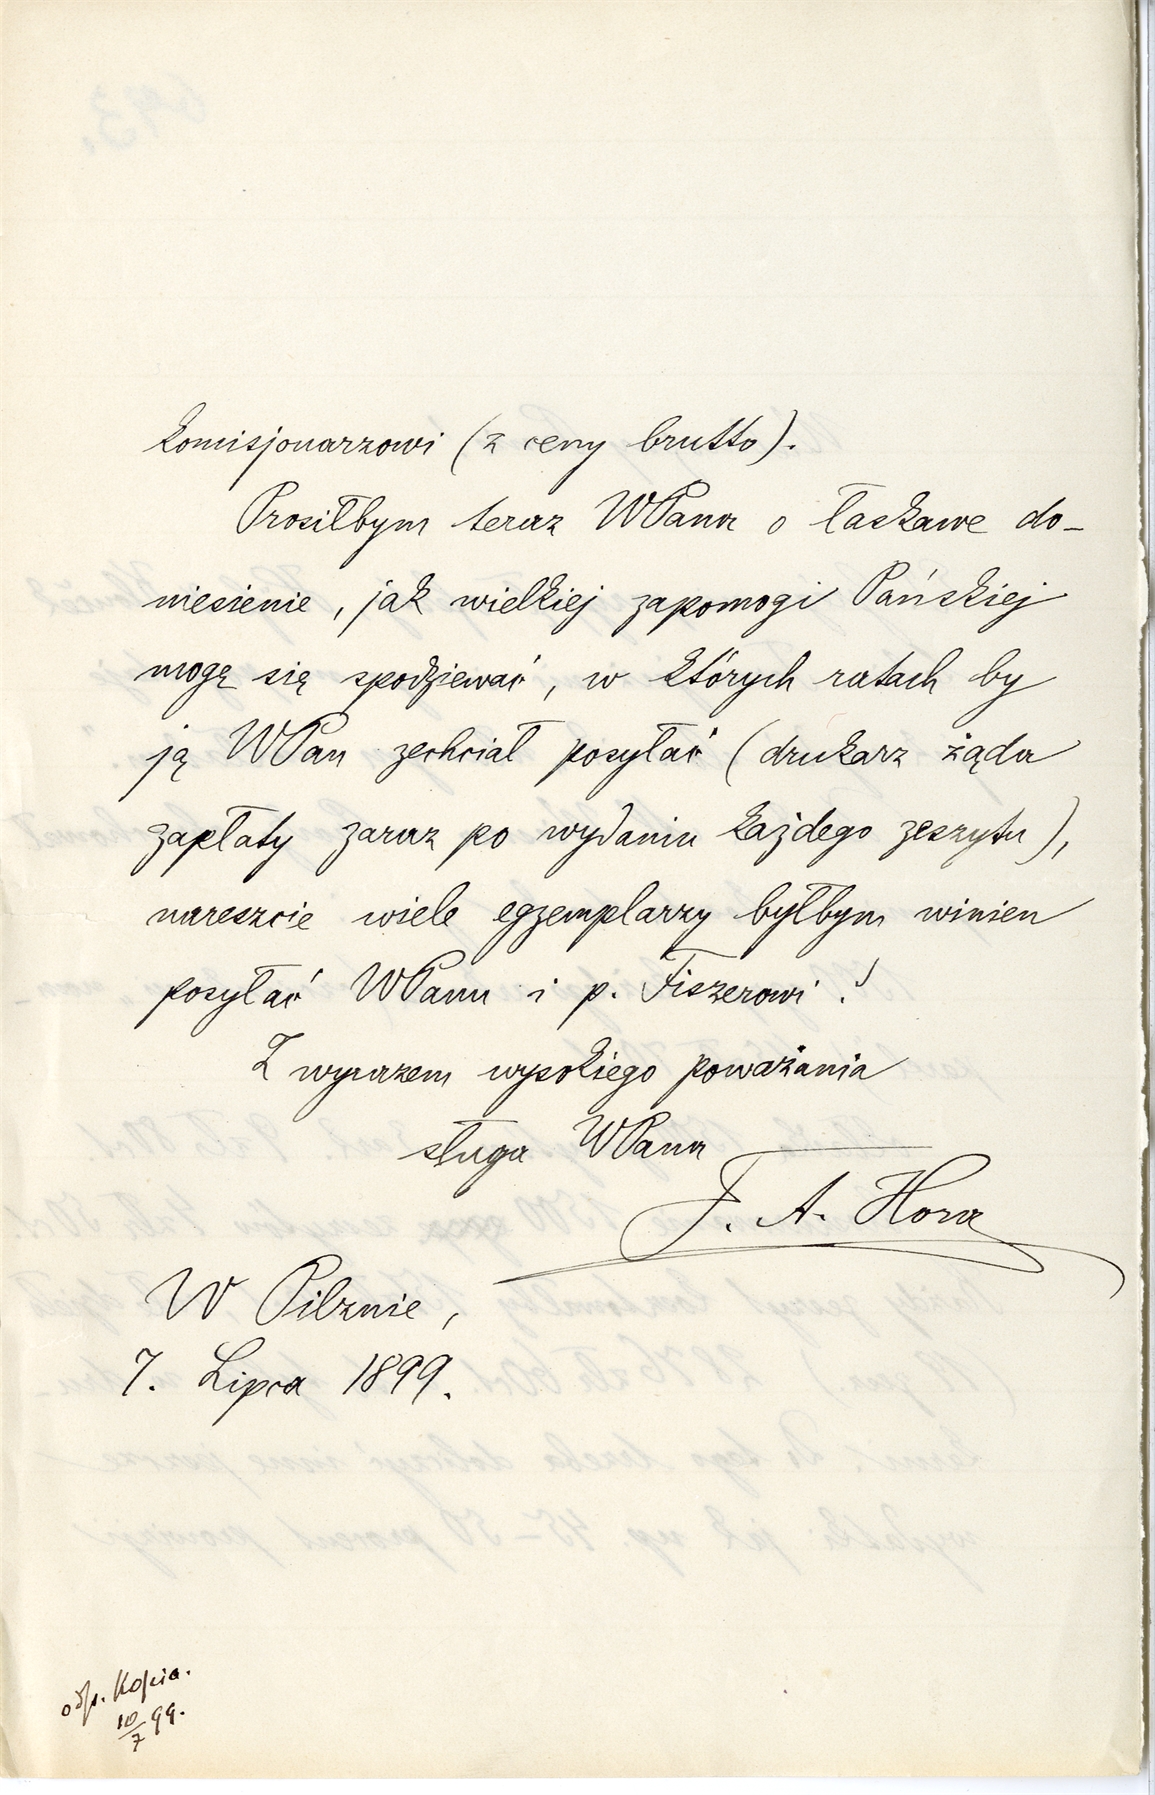 komisjonarzowi (z ceny brutto).
Prosiłbym teraz WPana o łaskawe do-
niesienie, jak wielkiej zapomogi Pańskiej
mogę się spodziewać, w których ratach by
ją WPan zechciał posyłać (drukarz żąda
zapłaty zaraz po wydaniu każdego zeszytu),
nareszcie wiele egzemplarzy byłbym winien
posyłać WPanu i p. Fiszerowi!
Z wyrazem wysokiego poważania
sługa WPana
F. A. Hora
W Pilznie,
7. Lipca 1899.
odp. Kopia.
10/7 99.